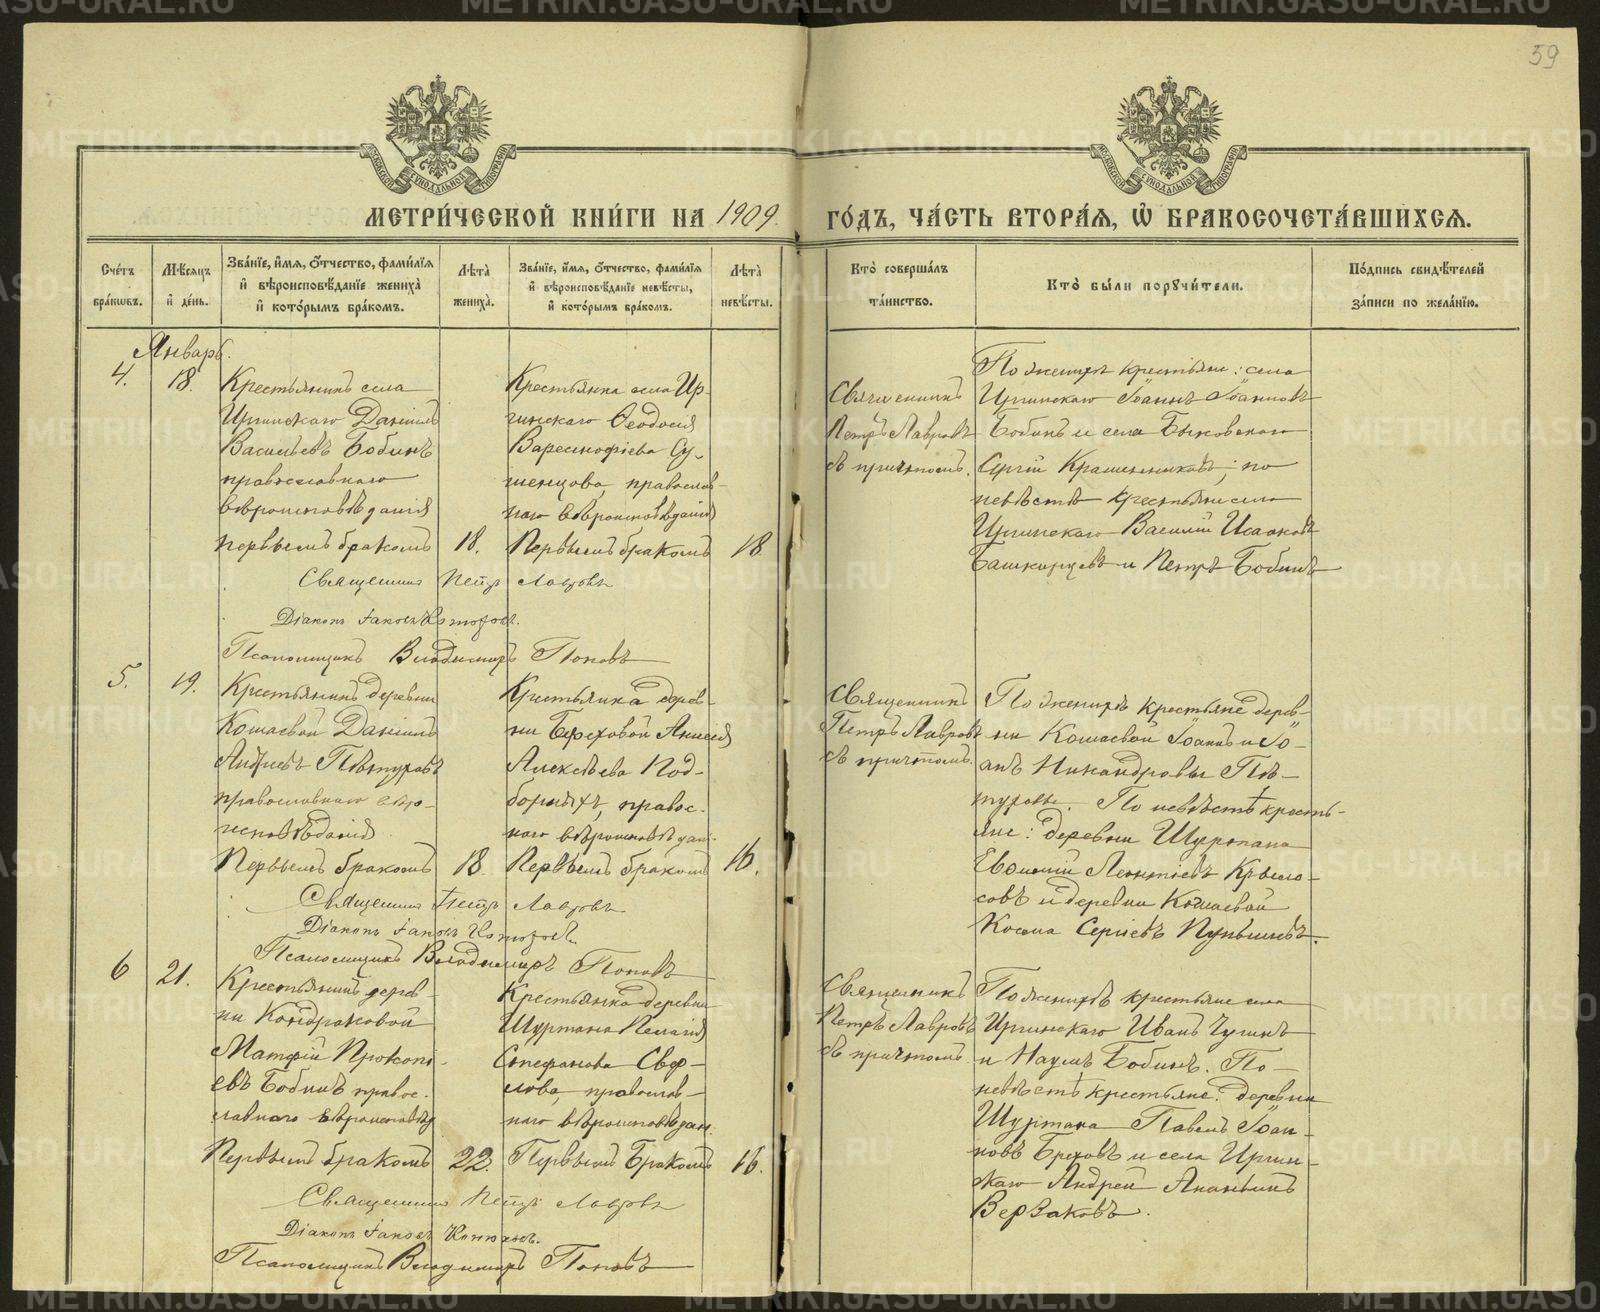 59
МЕТРИ́ЧЕСКОЙ КНИ́ГИ НА 1909 ГО́ДЪ, ЧА́СТЬ ВТОРА́Я, Ѡ БРАКОСОЧЕТА́ВШИХСЯ.
Сче́тъ бра́кωвъ.
Мѣ́сяцъ и҆ де́нь.
Зва́нїе, и҆́мя, ѻ҆́тчество, фами́лїя и҆ вѣроисповѣ́данїе жениха̀ и҆ кото́рымъ бра́комъ.
Лѣ́та̀ жениха̀.
Зва́нїе, и҆́мя, ѻ҆́тчество, фами́лїя и҆ вѣроисповѣ́данїе невѣ́сты, и҆ кото́рымъ бра́комъ.
Лѣ́та̀ невѣ́сты.
Кто̀ соверша́лъ та́инство.
Кто̀ бы́ли порꙋчи́тели.
По́дпись свидѣ́телей за́писи по жела́нїю.
Январь.
4.
18.
Крестьянинъ села
Иргинскаго Данiилъ
Васильевъ Бобинъ
православнаго
вѣроисповѣданiя
первымъ бракомъ
18.
Крестьянка села Ир-
гинскаго Ѳеодосiя
Су-
шенцова, православ-
наго вѣроисповѣданiя
Первымъ бракомъ
18
Священникъ
Петръ Лавровъ
съ причтомъ.
По женихѣ крестьяне: села
Иргинскаго Iоаннъ Iоанновъ
Бобинъ и села Быковскаго
Сергiй Крашенниковъ; по
невѣстѣ крестьяне села
Иргинскаго Василiй Исааковъ
Башкирцевъ и Петръ Бобинъ
Священникъ Петръ Лавровъ
Дiаконъ Iаковъ
Псаломщикъ Владимiръ Поповъ
5.
19.
Крестьянинъ деревни
Кошаевой Данiилъ
Пѣтуховъ
православнаго вѣро-
исповѣданiя
Первымъ бракомъ
18.
Крестьянка дерев-
ни Береховой Анисiя
Алексѣева Под-
борныхъ, правос.
наго вѣроисповѣдан-
Первымъ бракомъ
16.
Священникъ
Петръ Лавровъ
съ причтомъ.
По женихѣ крестьяне дерев-
ни Кошаевой Iоаннъ и Iо-
аннъ Никандровы Пѣ-
туховы. По невѣстѣ кресть-
яне: деревни Шуртана
Евѳимiй Леонтiевъ Крыло-
совъ и деревни Кошаевой
Косма Сергiевъ
Священникъ Петръ Лавровъ
Дiаконъ Iаковъ
Псаломщикъ Владимiръ Поповъ
6
21.
Крестьянинъ дерев-
ни Кондраковой
Матѳiй Прокопi-
евъ Бобинъ правос.
славнаго вѣроисповѣд
Первымъ бракомъ
22.
Крестьянка деревни
Шуртана Пелагiя
Стефанова Свѣ-
лова, православ-
наго вѣроисповѣдан.
Первымъ бракомъ
16.
Священникъ
Петръ Лавровъ
съ причтомъ
По женихѣ крестьяне села
Иргинскаго Иванъ Чугинъ
и Наумъ Бобинъ. По
невѣстѣ крестьяне: деревни
Шуртана Павелъ Iоан-
новъ Бреховъ и села Иргин-
скаго Андрей Ананьинъ
Верзаковъ.
Священникъ Петръ Лавровъ
Дiаконъ Iаковъ
Псаломщикъ Владимiръ Поповъ
METRIKI.GASO-URAL.RU